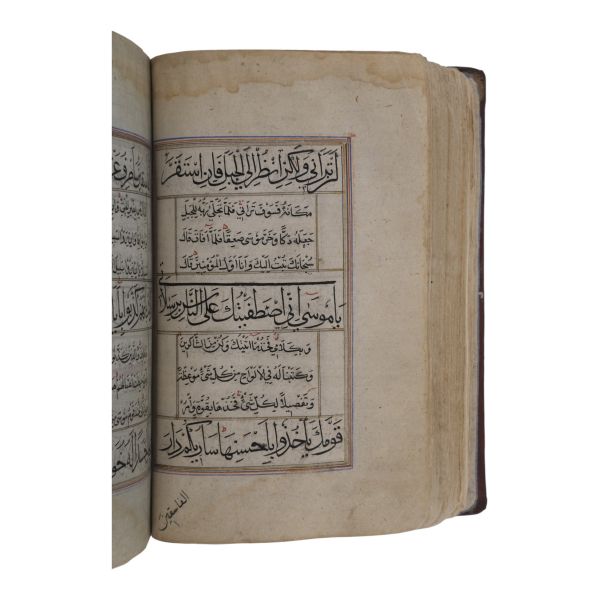 لَنْ تَرَانِي وَلَكِنِ انْظُرْ إِلَى الْجَبَلِ فَإِنِ اسْتَقَرَّ
مَكَانَهُ فَسَوْفَ تَرَانِي فَلَمَّا تَجَلَّى رَبُّهُ لِلْجَبَلِ
جَعَلَهُ دَكًّا وَخَرَّ مُوسَى صَعِقًا فَلَمَّا أَفَاقَ قَالَ
سُبْحَانَكَ تُبْتُ إِلَيْكَ وَأَنَا أَوَّلُ الْمُؤْمِنِينَ قَالَ
يَا مُوسَى إِنِّي اصْطَفَيْتُكَ عَلَى النَّاسِ بِرِسَالَاتِي
وَبِكَلَامِي فَخُذْ مَا آتَيْتُكَ وَكُنْ مِنَ الشَّاكِرِينَ
وَكَتَبْنَا لَهُ فِي الْأَلْوَاحِ مِنْ كُلِّ شَيْءٍ مَوْعِظَةً
وَتَفْصِيلًا لِكُلِّ شَيْءٍ فَخُذْهَا بِقُوَّةٍ وَأْمُرْ
قَوْمَكَ يَأْخُذُوا بِأَحْسَنِهَا سَأُرِيكُمْ دَارَ
الفاسقين